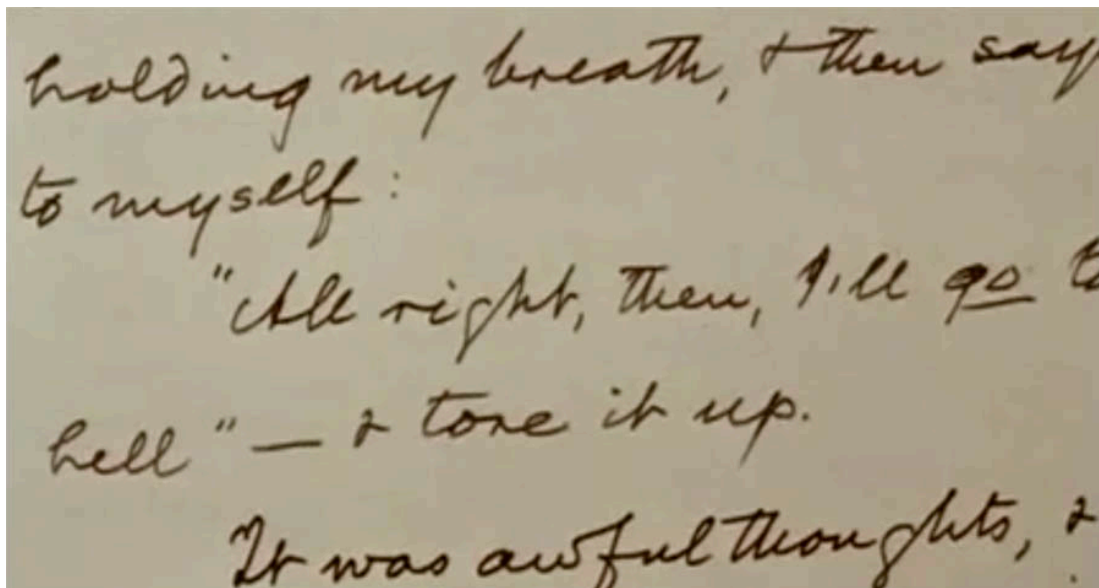 holding my breath, & then say
to myself:
"All right, then, I'll go to
hell" — & tore it up.
It was awful thoughts, &